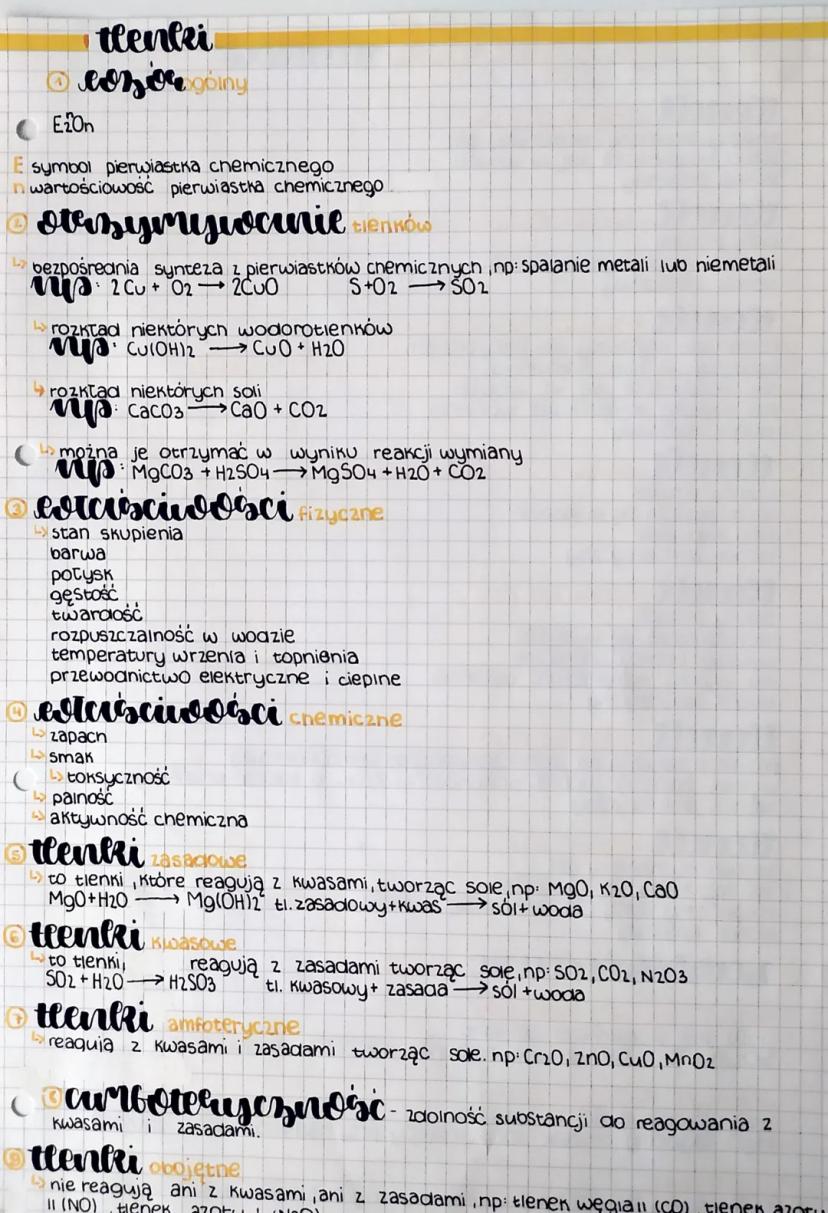 tlenki
① wzór ogólny
E2On
E symbol pierwiastka chemicznego
n wartościowość pierwiastka chemicznego
② otrzymywanie tlenków
↳ bezpośrednia synteza z pierwiastków chemicznych, np: spalanie metali lub niemetali
np: 2Cu + O2 → 2CuO S+O2 → SO2
↳ rozkład niektórych wodorotlenków
np: Cu(OH)2 → CuO + H2O
↳ rozkład niektórych soli
np: CaCO3 → CaO + CO2
↳ można je otrzymać w wyniku reakcji wymiany
np: MgCO3 + H2SO4 → MgSO4 + H2O + CO2
③ właściwości fizyczne
↳ stan skupienia
barwa
połysk
gęstość
twardość
rozpuszczalność w wodzie
temperatury wrzenia i topnienia
przewodnictwo elektryczne i cieplne
④ właściwości chemiczne
↳ zapach
↳ smak
↳ toksyczność
↳ palność
↳ aktywność chemiczna
⑤ tlenki zasadowe
↳ to tlenki, które reagują z kwasami, tworząc sole, np: MgO, K2O, CaO
MgO+H2O → Mg(OH)2 tl. zasadowy+kwas → sól+woda
⑥ tlenki kwasowe
↳ to tlenki, reagują z zasadami tworząc sole, np: SO2, CO2, N2O3
SO2 + H2O → H2SO3 tl. kwasowy+ zasada → sól +woda
⑦ tlenki amfoteryczne
↳ reagują z kwasami i zasadami tworząc sole. np: Cr2O, ZnO, CuO, MnO2
⑧ amfoteryczność - zdolność substancji do reagowania z
kwasami i zasadami.
⑨ tlenki obojętne
↳ nie reagują ani z kwasami, ani z zasadami, np: tlenek węgla II (CO) tlenek azotu
II (NO), tlenek azotu I